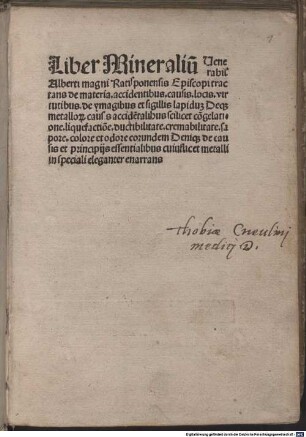 Liber Mineraliũ Uene
rabił
Alberti magni Ratisponensis Episcopi trac
tans de materia. accidentibus. causis. locis. vir
tutibus. de ymagibus et sigillis lapiduȝ Decȝ
metalloꝝ caus s accidẽtalibus scilicet cõgelati-
one. liquefactiõe. ductibilitate. cremabilitate. sa
pore. colore et odore eorundem Deniqȝ de cau
sis et principijs essentialibus cuiuslicet metalli
in speciali eleganter enarrans
thobiæ Cneulinj
medicj D.
1